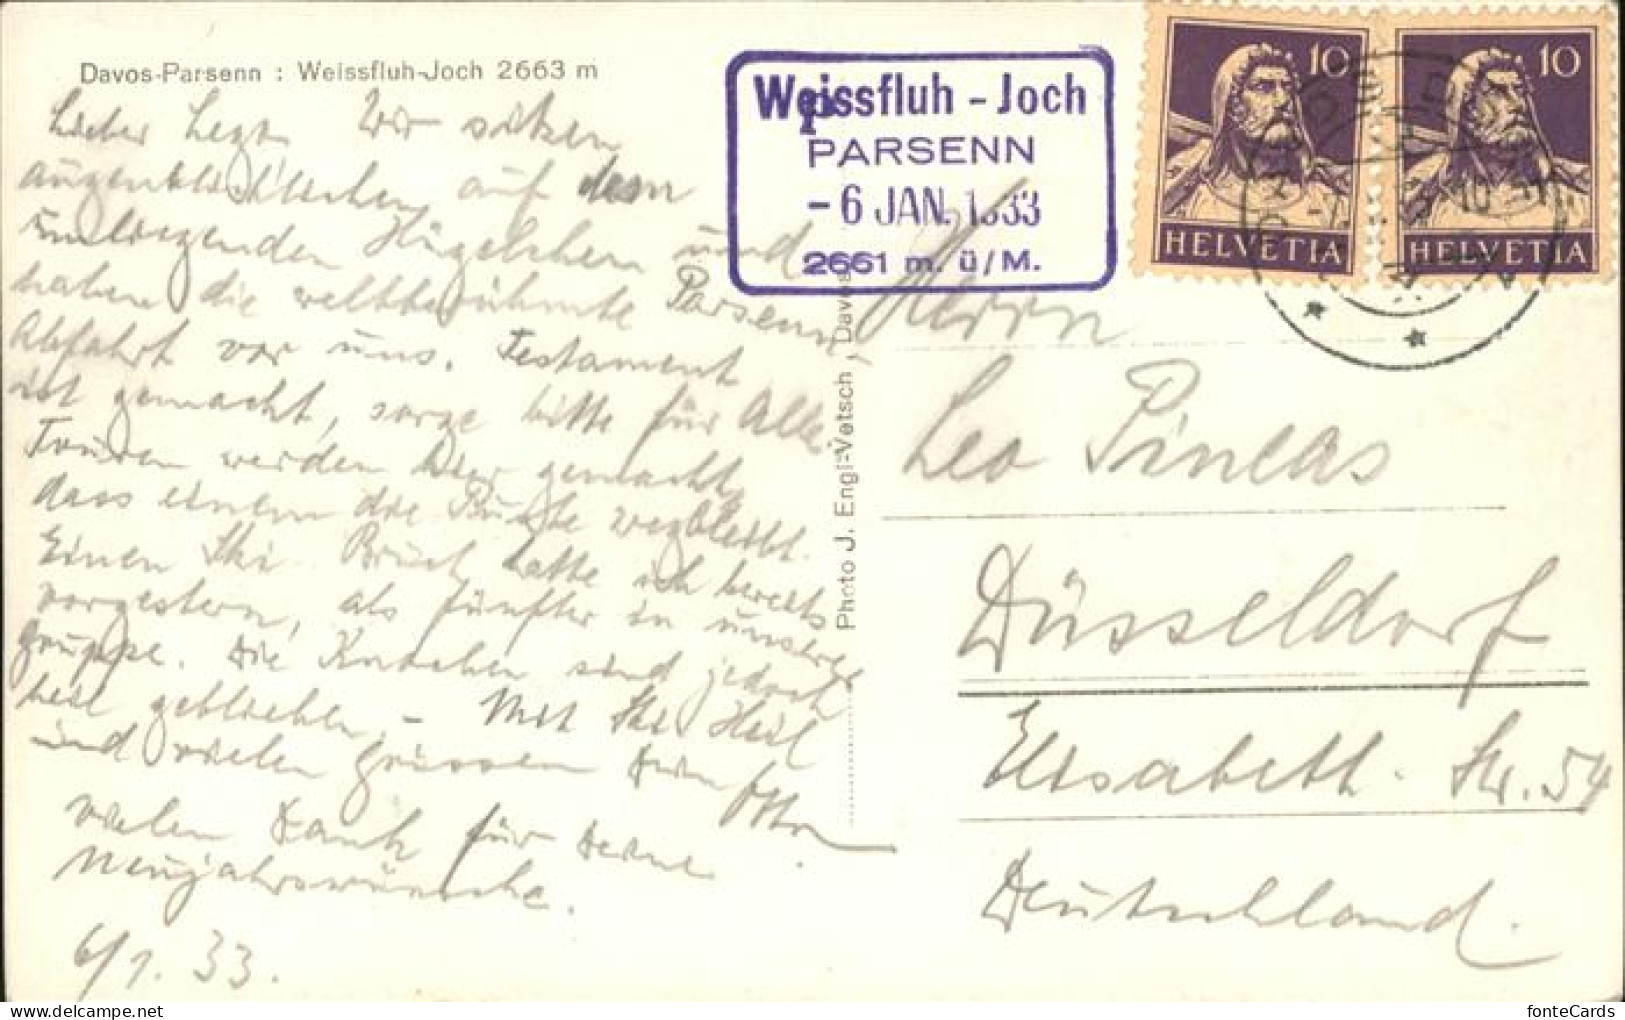 Davos-Parsenn : Weissfluh-Joch 2663 m
Lieber Wir sitzen
augenblicklich auf dem
umliegenden Hügelchen und
haben die weltberühmte Parsenn-
Abfahrt vor uns. Testament
ist gemacht, sorge bitte für Alle
Touren werden hier gemacht,
dass einem die Puste wegbleibt.
Einen Ski-Bruch hatte ich bereits
vorgestern, als fünfter in unserer
Gruppe. Die Knochen sind jedoch
heil geblieben. - Mit Ski Heil
und vielen Grüssen Dein
Otto
vielen Dank für Deine
Neujahrswünsche.
6/1.33.
Photo J. Engi-Vetsch, Davos
Weissfluh - Joch
PARSENN
- 6 JAN. 1933
2661 m. ü/M.
10
HELVETIA
10
HELVETIA
Herrn
Leo Pineas
Düsseldorf
Elisabeth. Str. 54
Deutschland.
fonteCards